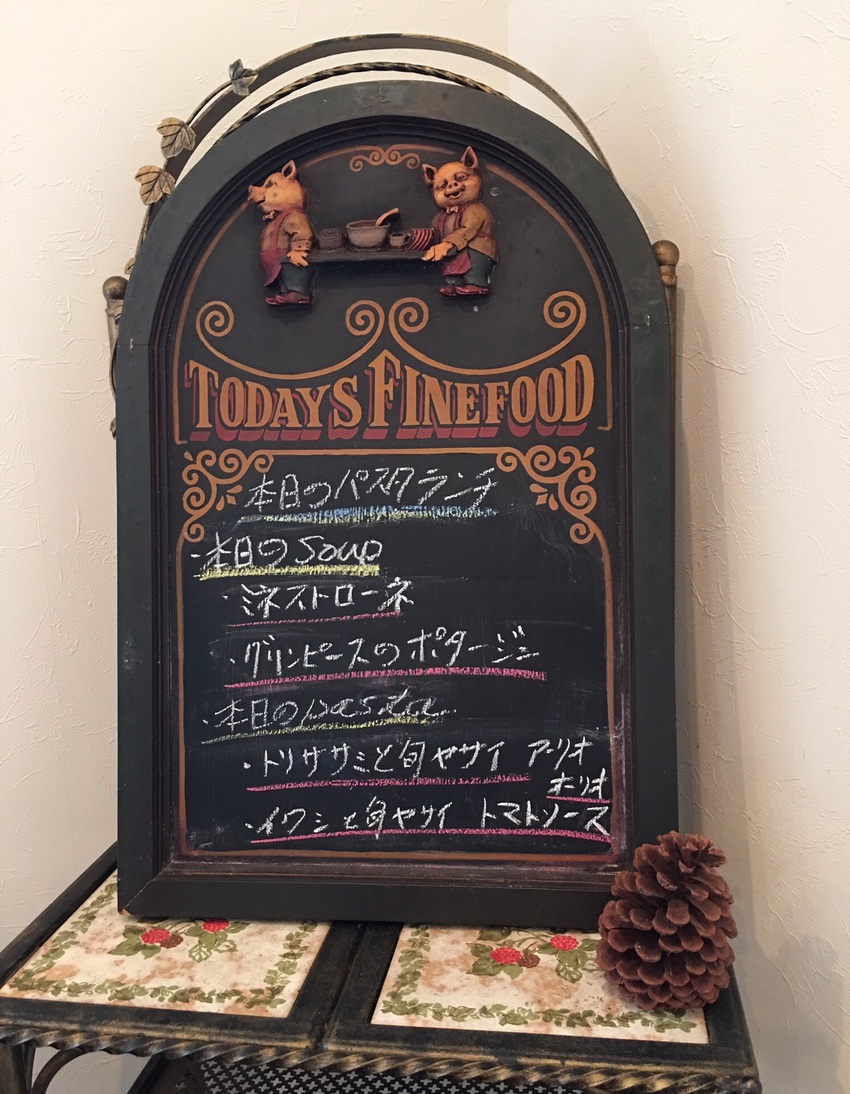 TODAYS FINEFOOD
本日のパスタランチ
・本日のSoup
・ミネストローネ
・グリンピースのポタージュ
・本日のpasta
・トリササミと旬ヤサイ アーリオ
オーリオ
・イワシと旬ヤサイ トマトソース